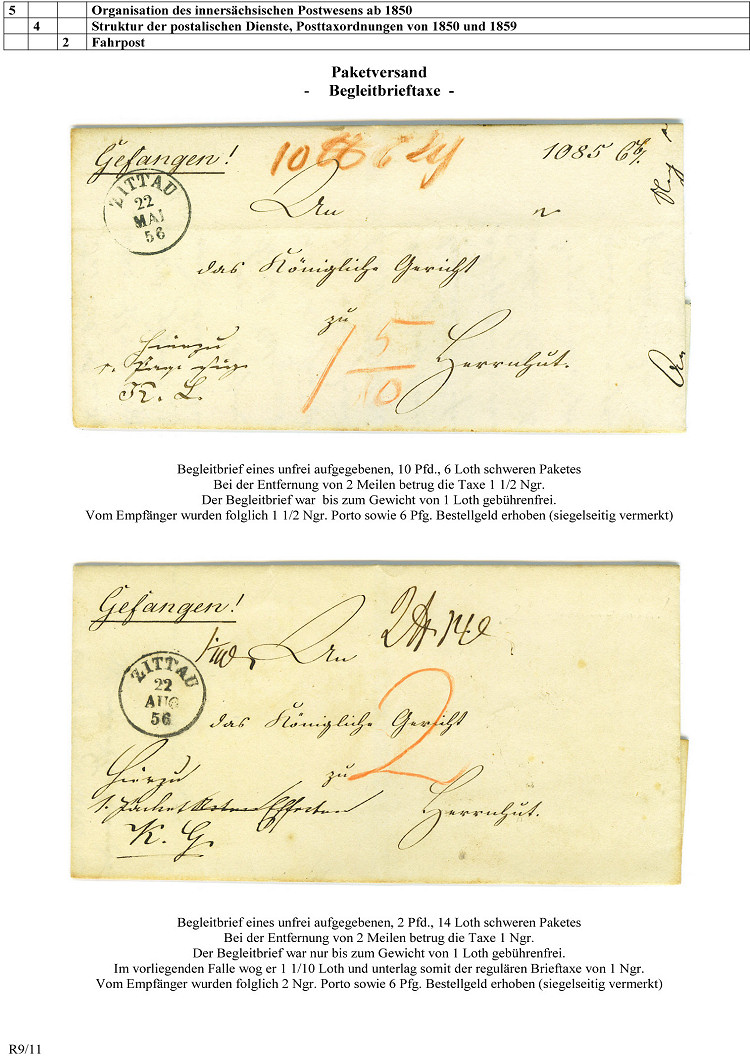 5 Organisation des innersächsischen Postwesens ab 1850
4 Struktur der postalischen Dienste, Posttaxordnungen von 1850 und 1859
2 Fahrpost
Paketversand
- Begleitbrieftaxe -
Gefangen!
1085
ZITTAU
22
MAI
56
An
das Königliche Gericht
zu
Herrnhut.
Hierzu
5
10
Begleitbrief eines unfrei aufgegebenen, 10 Pfd., 6 Loth schweren Paketes
Bei der Entfernung von 2 Meilen betrug die Taxe 1 1/2 Ngr.
Der Begleitbrief war bis zum Gewicht von 1 Loth gebührenfrei.
Vom Empfänger wurden folglich 1 1/2 Ngr. Porto sowie 6 Pfg. Bestellgeld erhoben (siegelseitig vermerkt)
Gefangen!
An
ZITTAU
22
AUG
56
das Königliche Gericht
2
Hierzu
zu
1. Packet Effecten
Herrnhut.
K. G.
Begleitbrief eines unfrei aufgegebenen, 2 Pfd., 14 Loth schweren Paketes
Bei der Entfernung von 2 Meilen betrug die Taxe 1 Ngr.
Der Begleitbrief war nur bis zum Gewicht von 1 Loth gebührenfrei.
Im vorliegenden Falle wog er 1 1/10 Loth und unterlag somit der regulären Brieftaxe von 1 Ngr.
Vom Empfänger wurden folglich 2 Ngr. Porto sowie 6 Pfg. Bestellgeld erhoben (siegelseitig vermerkt)
R9/11